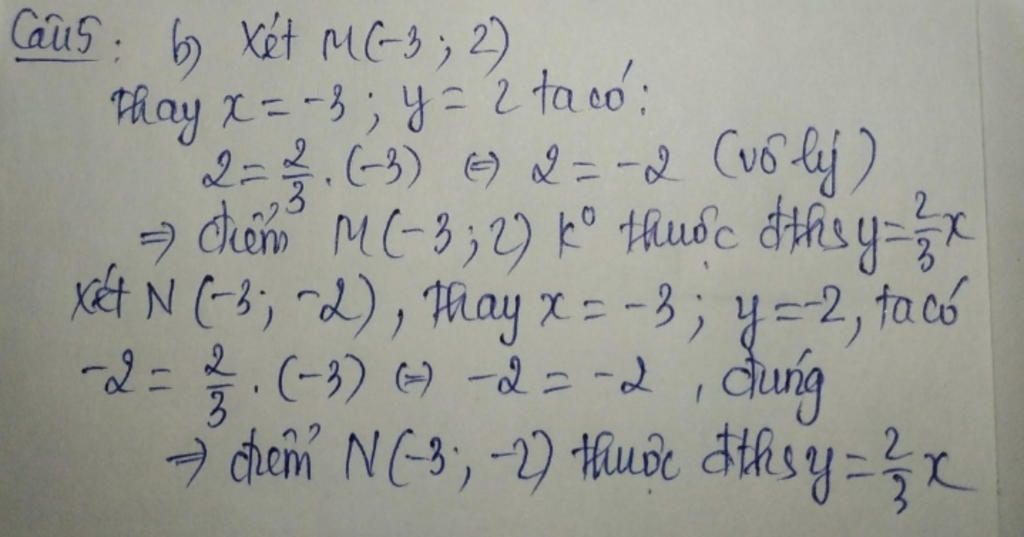 Câu 5: b) Xét M(-3; 2)
Thay x = -3; y = 2 ta có:
2 = 2/3 . (-3) ⇔ 2 = -2 (vô lý)
⇒ điểm M(-3; 2) k° thuộc đths y = 2/3 x
Xét N(-3; -2), Thay x = -3; y = -2, ta có
-2 = 2/3 . (-3) ⇔ -2 = -2, đúng
⇒ điểm N(-3; -2) thuộc đths y = 2/3 x